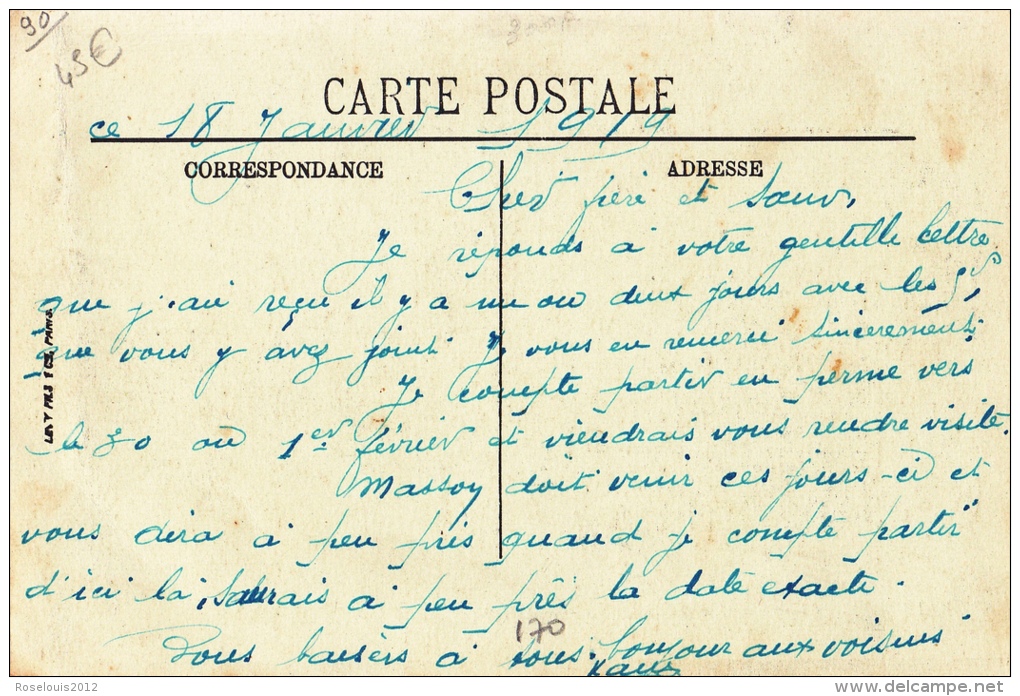 90/
45€
CARTE POSTALE
ce 18 Janvier 1919
CORRESPONDANCE
ADRESSE
Cher père et Sœur,
Je réponds à votre gentille lettre
que j'ai reçu il y a un ou deux jours avec les
que vous y avez joint Je vous en remerci sincerement
LEVY FILS & CIE, PARIS
Je compte partir en perme vers
le 30 ou 1er février et viendrais vous rendre visite.
Massoy doit venir ces jours-ci et
vous dira à peu près quand je compte partir
d'ici là, Saurais à peu près la date exacte.
170
Bons baisers à tous. bonjour aux voisins
Roselouis2012
www.delcampe.net